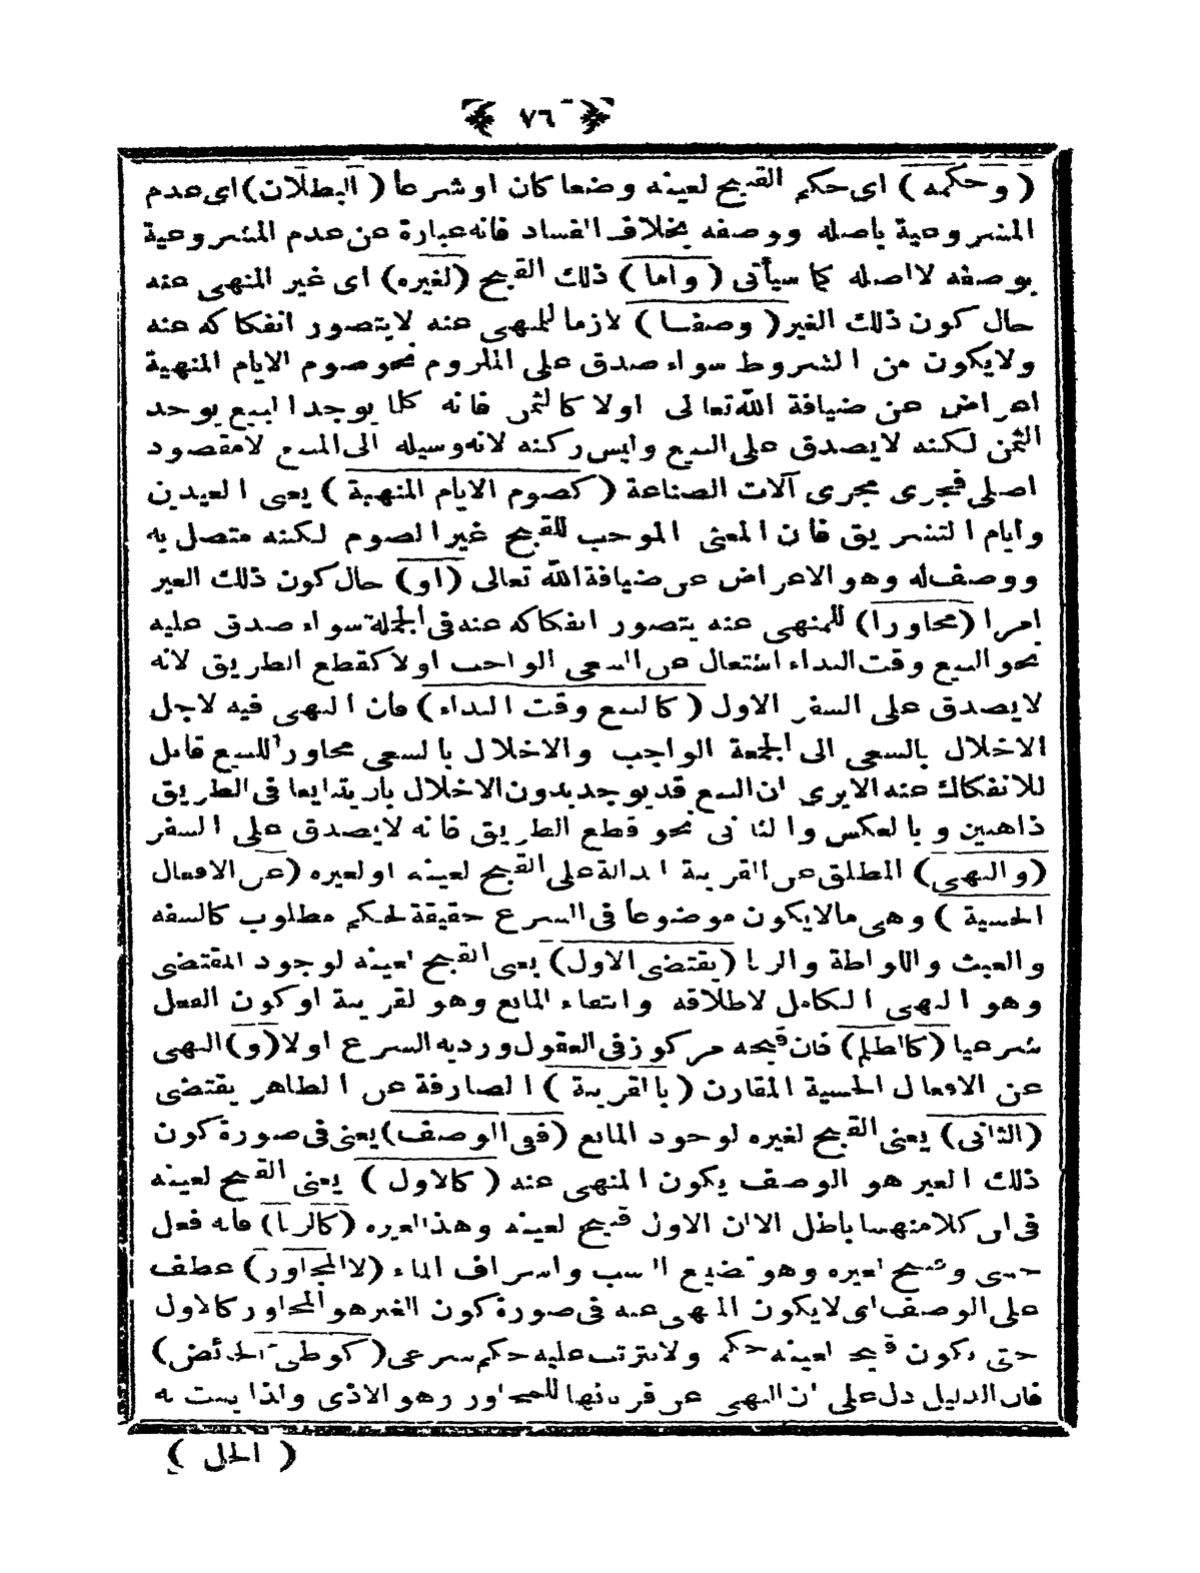 ﴿ ٧٦ ﴾
( وحكمه ) اى حكم القبيح لعينه وضعا كان او شرعا ( البطلان ) اى عدم
المشروعية باصله ووصفه بخلاف الفساد فانه عبارة عن عدم المشروعية
بوصفه لا اصله كما سيأتى ( واما ) ذلك القبيح ( لغيره ) اى غير المنهى عنه
حال كون ذلك الغير ( وصفا ) لازما للمنهى عنه لا يتصور انفكاكه عنه
ولايكون من الشروط سواء صدق على الملزوم نحو صوم الايام المنهية
اعراض عن ضيافة الله تعالى اولا كالثمن فانه كلما يوجد البيع يوجد
الثمن لكنه لا يصدق على البيع وليس ركنه لانه وسيلة الى المبيع لا مقصود
اصلى فيجرى مجرى آلات الصناعة ( كصوم الايام المنهية ) يعنى العيدين
وايام التشريق فان المعنى الموجب للقبح غير الصوم لكنه متصل به
ووصف له وهو الاعراض عن ضيافة الله تعالى ( او ) حال كون ذلك الغير
امرا ( مجاورا ) للمنهى عنه يتصور انفكاكه عنه فى الجملة سواء صدق عليه
نحو البيع وقت النداء اشتغال عن السعى الواجب اولا كقطع الطريق لانه
لايصدق على السفر الاول ( كالبيع وقت النداء ) فان النهى فيه لاجل
الاخلال بالسعى الى الجمعة الواجب والاخلال بالسعى مجاور للبيع قابل
للانفكاك عنه الايرى ان البيع قد يوجد بدون الاخلال بان يتبايعا فى الطريق
ذاهبين وبالعكس والثانى نحو قطع الطريق فانه لايصدق على السفر
( والنهى ) المطلق عن القرينة الدالة على القبح لعينه او لغيره ( عن الافعال
الحسية ) وهى مالايكون موضوعا فى الشرع حقيقة لحكم مطلوب كالسفه
والعبث واللواطة والزنا ( يقتضى الاول ) يعنى القبح لعينه لوجود المقتضى
وهو النهى الكامل لاطلاقه وانتفاء المانع وهو لقرينة او كون الفعل
شرعيا ( كالظلم ) فان قبحه مركوز فى العقول ورد به الشرع اولا ( و ) النهى
عن الافعال الحسية المقارن ( بالقرينة ) الصارفة عن الظاهر يقتضى
( الثانى ) يعنى القبح لغيره لوجود المانع ( ففى الوصف ) يعنى فى صورة كون
ذلك الغير هو الوصف يكون المنهى عنه ( كالاول ) يعنى القبح لعينه
فى ان كلا منهما باطل الا ان الاول قبيح لعينه وهذا لغيره ( كالزنا ) فانه فعل
حسى وقبيح لغيره وهو تضييع النسب واسراف الماء ( لا المجاور ) عطف
على الوصف اى لا يكون المنهى عنه فى صورة كون الغير هو المجاور كالاول
حتى يكون قبيحا لعينه حكما ولا يترتب عليه حكم شرعى ( كوطئ الحائض )
فان الدليل دل على ان النهى عن قربانها للمجاور وهو الاذى ولذا يثبت به
( الحل )